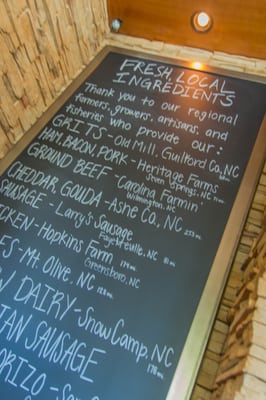 FRESH, LOCAL
INGREDIENTS
Thank you to our regional
farmers, growers, artisans, and
fisheries who provide our:
GRITS - Old Mill, Guilford Co, NC
HAM, BACON, PORK - Heritage Farms
Seven Springs, NC
GROUND BEEF - Carolina Farmin'
Wilmington, NC
CHEDDAR, GOUDA - Ashe Co, NC
SAUSAGE - Larry's Sausage
Fayetteville, NC
CKEN - Hopkins Farm
Greensboro, NC
ES - Mt. Olive, NC
DAIRY - Snow Camp, NC
SAUSAGE
ORIZO -